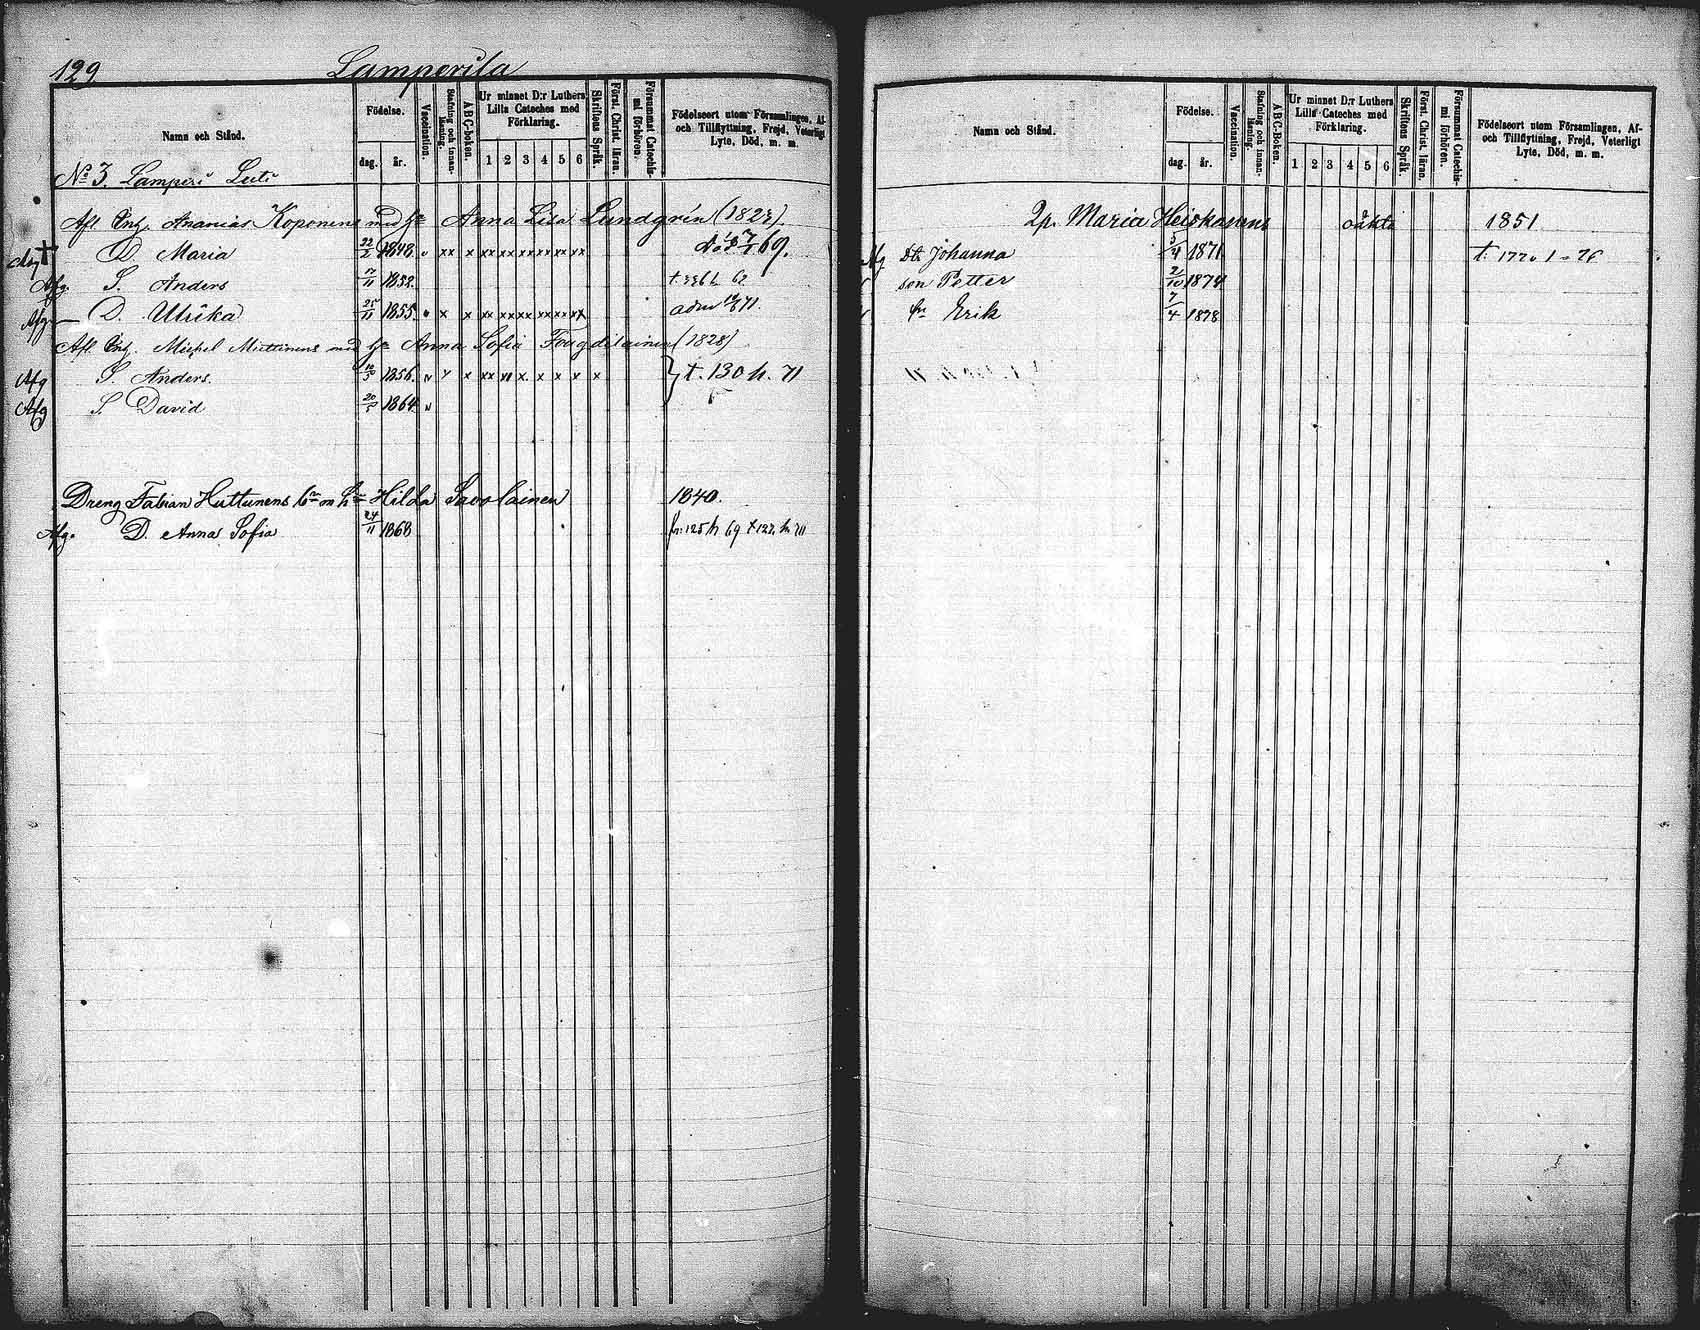 129 Lamperila
Namn och Stånd.
Födelse.
dag. år.
Vaccination.
Stafning och innanläsning.
ABC-boken.
Ur minnet D:r Luthers Lilla Cateches med Förklaring.
1 2 3 4 5 6
Skriftens Språk.
Först. Christ. läran.
Försummat Catechismi förhören.
Födelseort utom Församlingen, Af- och Tillflyttning, Frejd, Veterligt Lyte, Död, m. m.
No 3. Lamperi
Afl. Anna Lisa Lundgrén
D. Maria 22/2 1848 xx x xx xx xx xx xx xx 69.
Afg. S. Anders 1852
Afg. D. Ulrika 25/11 1855 x x xx xx xx xx xx xx
Afl. Anna Sofia (1828)
Afg S. Anders. 1856 x x xx x x x x x } t. 130 h. 71
Afg S. David 20/5 1864
Dreng Fabian Huttunens Hilda Savolainen 1840.
Afg. D. Anna Sofia 24/11 1868 fr. 125 h 69 t 122 h 71
Namn och Stånd.
Födelse.
dag. år.
Vaccination.
Stafning och innanläsning.
ABC-Boken.
Ur minnet D:r Luthers Lilla Cateches med Förklaring.
1 2 3 4 5 6
Skriftens Språk.
Först. Christ. läran.
Försummat Catechismi förhören.
Födelseort utom Församlingen, Af- och Tillflyttning, Frejd, Veterligt Lyte, Död, m. m.
Qp. Maria Heiskanens oäkta 1851
Afg Johanna 1871
son Petter 2/10 1874
Erik 7/4 1878